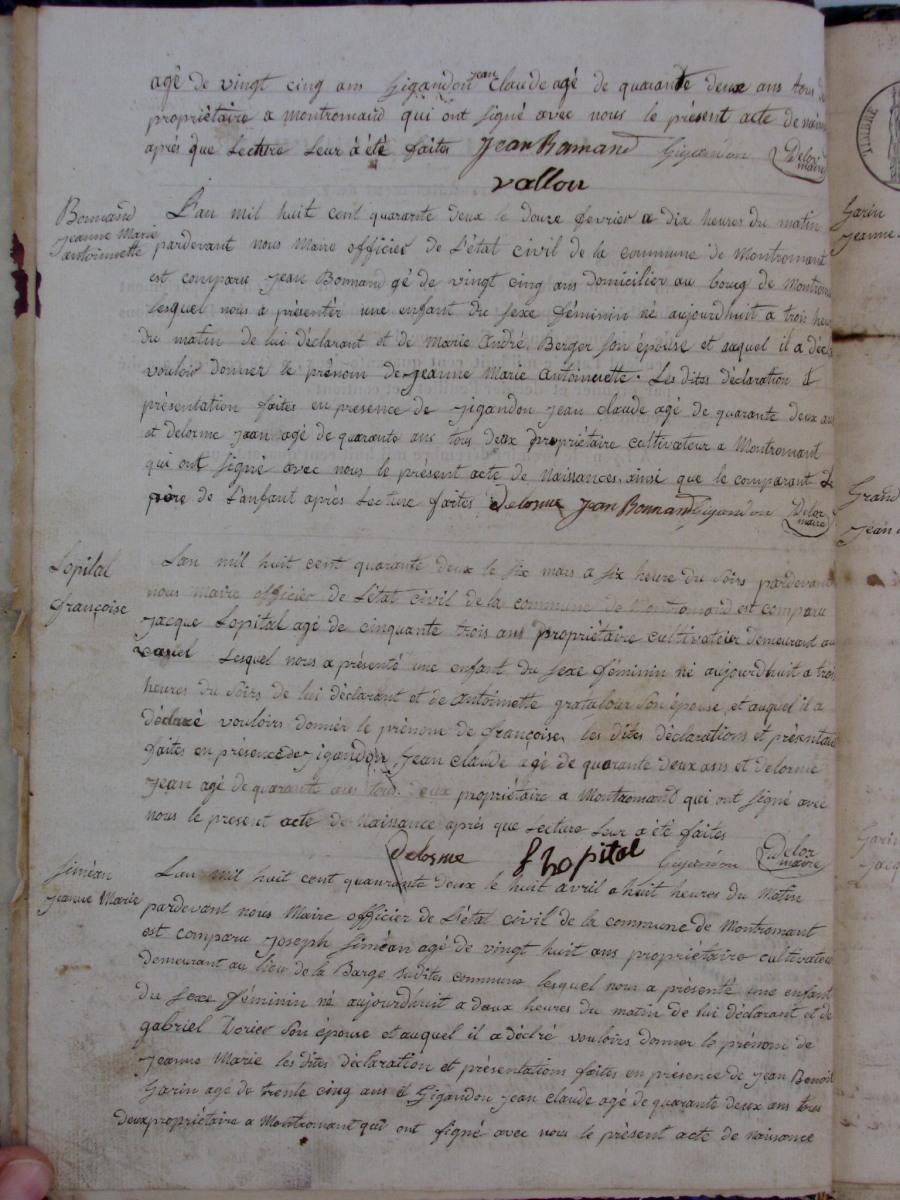 agé de vingt cinq ans Gigandon jean claude agé de quarante deux ans tous
propriétaire a montromand qui ont signé avec nous le présent acte de
après que Lecture Leur à été faites Jean Bonnand Gigandon Delor maire
vallou
Bonnand
jeanne Marie
antoinnette
L'an mil huit cent quarante deux le douze fevrier a dix heures du matin
pardevant nous Maire officier de L'état civil de la commune de Montromant
est comparu jean Bonnand gé de vingt cinq ans domicilier au bourg de
Lesquel nous a présenter une enfant du sexe féminin né aujourdhuit a trois
du matin de lui déclarant et de Marie André Berger son épouse et auquel il a
vouloir donner le prénom de jeanne Marie antoinette. Les dites déclaration et
présentation faites en presence de jigandon jean claude agé de quarante deux ans
et delorme jean agé de quarante ans tous deux propriétaire cultivateur a Montromant
qui ont signé avec nous le present acte de Naissances ainsi que le comparant Le
père de L'anfant après Lecture faites Delorme Jean Bonnand Gigandon Delor maire
Lopital
françoise
Lan mil huit cent quarante deux le six mars a six heure du Soirs pardevant
nous maire officier de L'état civil de la commune de Montromand est comparu
jacque Lopital agé de cinquante trois ans propriétaire cultivateur demeurant au
Lesquel nous a présenté une enfant du sexe féminin né aujourdhuit a trois
heures du Soirs de lui déclarant et de antoinette grataloup Son épouse, et auquel il a
déclaré vouloirs donnér le prénom de françoise les dites déclarations et
faites en présence de jigandon jean claude agé de quarante deux ans et delorme
jean agé de quarante ans tous deux propriétaire a Montromant qui ont signé avec
nous le present acte de Naissance après que Lecture Leur a été faites
Delorme Lopital Gigandon Delor maire
Siméan
jeanne Marie
Lan mil huit cent quanrante deux le huit avril a huit heures du Matin
pardevant nous Maire officier de L'état civil de la commune de Montromant
est comparu joseph Siméan agé de vingt huit ans propriétaire cultivateur
demeurant au lieu de la Barge sudites commune lesquel nous a présenté une enfant
du Sexe féminin né aujourdhuit a deux heures du matin de lui déclarant et de
gabriel Son épouse et auquel il a décléré vouloirs donner le prénom de
jeanne Marie les dites déclaration et présentations faites en présence de jean Benoit
Garin agé de trente cinq ans et Gigandon jean claude agé de quarante deux ans tous
deux propriétaire a Montromant qui ont signé avec nous le présent acte de naissance
TIMBRE
Garin
jeanne
Grand
jean
Garin
jacq